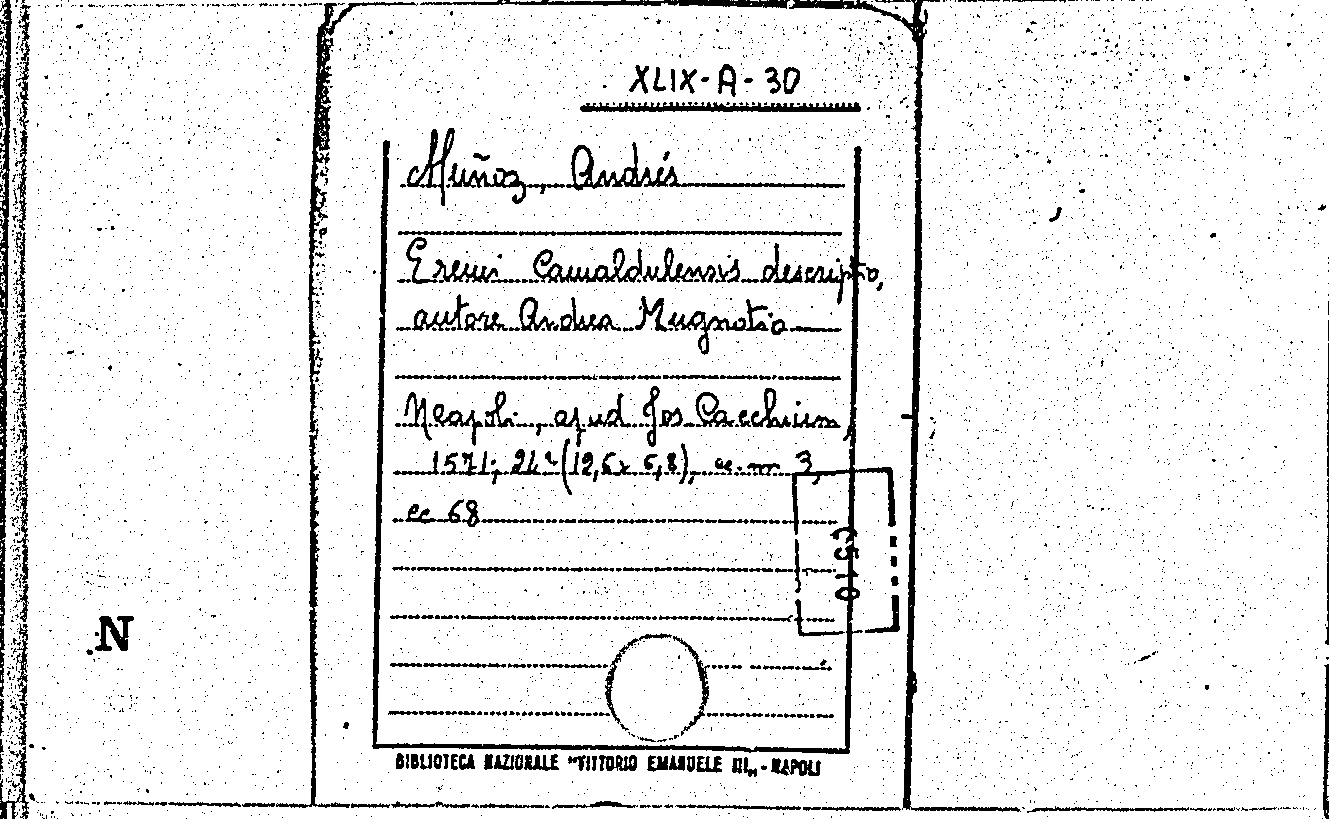 XLIX-A-30
Muñoz, Andrés
Eremi Camaldulensis descriptio,
autore Andrea Mugnotio
Neapoli, apud Jos Cacchium,
1571; 24º (12,6 x 6,8), cc. nn 3,
cc 68
C5 10
N
BIBLIOTECA NAZIONALE "VITTORIO EMANUELE III„ - NAPOLI